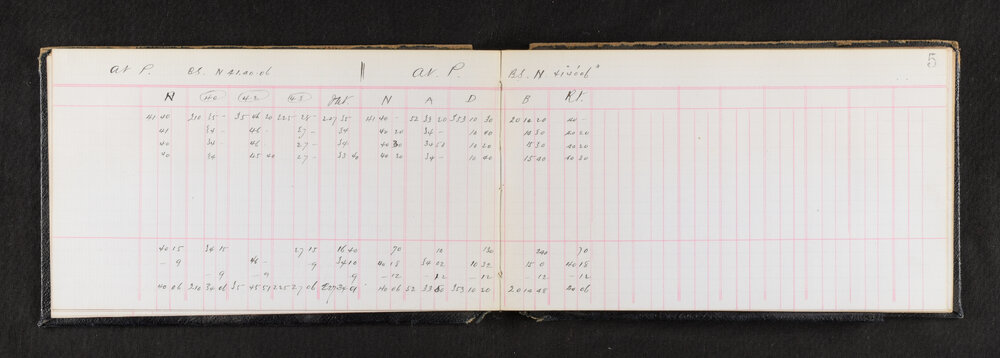 5
At P. BS. N 41.40.06 || At. P. BS. N 41°40'06"
N 40 42 43 Jkt. N A D B Rt.
41 40 210 35 - 35 46 20 225 28 - 227 35 41 40 - 52 33 20 353 10 30 20 16 20 40 -
41 34 - 46 - 27 - 34 40 20 34 - 10 40 16 30 40 20
40 34 - 46 27 - 34 40 30 34 50 10 20 15 30 40 20
40 34 45 40 27 - 33 40 40 20 34 - 10 40 15 40 40 20
40 15 34 15 27 15 16 40 70 10 130 240 70
- 9 46 - 9 34 10 40 18 34 02 10 32 15 0 40 18
- 9 - 9 9 - 12 - 12 - 12 - 12 - 12
40 06 210 34 06 35 45 51 225 27 06 227 34 01 40 06 52 33 50 353 10 20 20 14 48 40 06